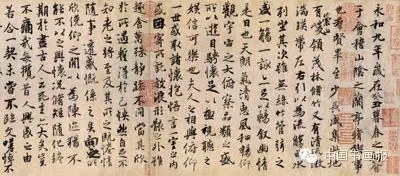 永和九年歲在癸丑暮春之初會
于會稽山陰之蘭亭脩稧事
也群賢畢至少長咸集此地
有崇山峻領茂林脩竹又有清流激
湍暎帶左右引以為流觴曲水
列坐其次雖無絲竹管弦之
盛一觴一詠亦足以暢敘幽情
是日也天朗氣清惠風和暢仰
觀宇宙之大俯察品類之盛
所以遊目騁懷足以極視聽之
娛信可樂也夫人之相與俯仰
一世或取諸懷抱悟言一室之內
或因寄所託放浪形骸之外雖
趣舍萬殊靜躁不同當其欣
於所遇暫得於己快然自足不
知老之將至及其所之既惓情
隨事遷感慨係之矣向之所
欣俛仰之間以為陳迹猶不
能不以之興懷況脩短隨化終
期於盡古人云死生亦大矣豈
不痛哉每攬昔人興感之由
若合一契未嘗不臨文嗟悼不
中国书画报